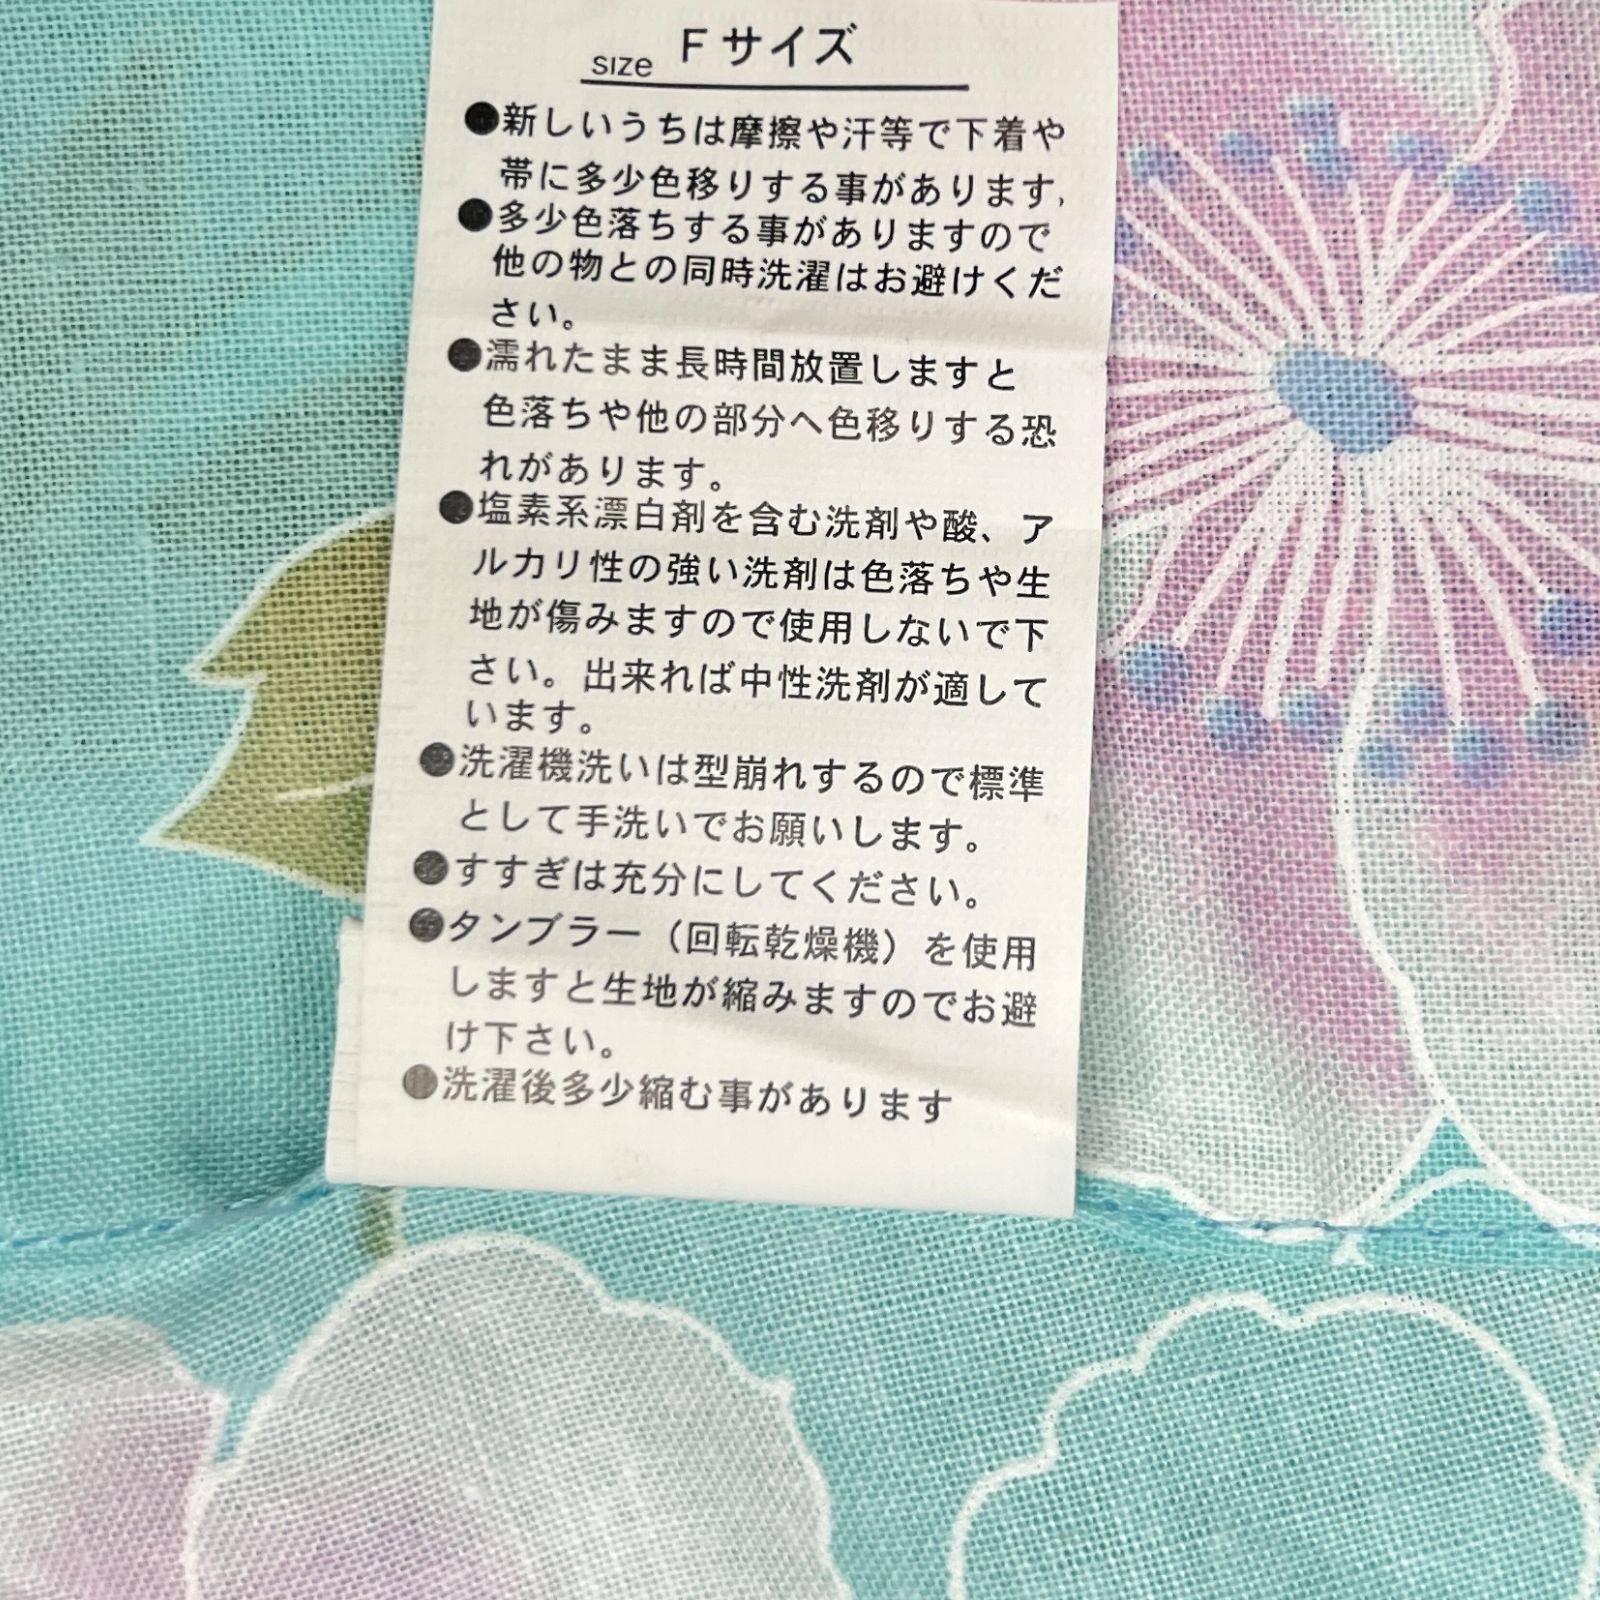 size Fサイズ
●新しいうちは摩擦や汗等で下着や
帯に多少色移りする事があります,
●多少色落ちする事がありますので
他の物との同時洗濯はお避けくだ
さい。
●濡れたまま長時間放置しますと
色落ちや他の部分へ色移りする恐
れがあります。
●塩素系漂白剤を含む洗剤や酸、ア
ルカリ性の強い洗剤は色落ちや生
地が傷みますので使用しないで下
さい。出来れば中性洗剤が適して
います。
●洗濯機洗いは型崩れするので標準
として手洗いでお願いします。
●すすぎは充分にしてください。
●タンブラー（回転乾燥機）を使用
しますと生地が縮みますのでお避
け下さい。
●洗濯後多少縮む事があります